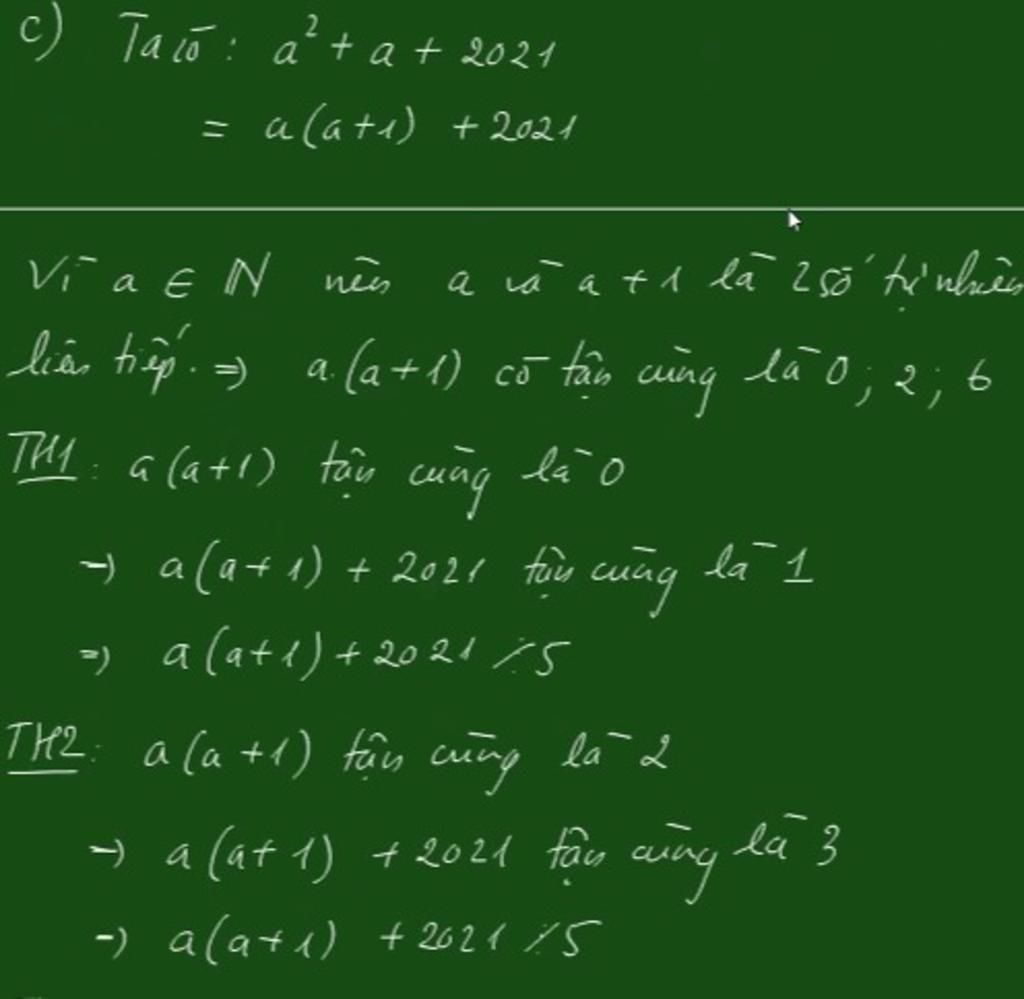 c) Ta có: a² + a + 2021
= a(a+1) + 2021
Vì a ∈ ℕ nên a và a + 1 là 2 số tự nhiên
liên tiếp. ⇒ a.(a+1) có tận cùng là 0; 2; 6
TH1: a(a+1) tận cùng là 0
→ a(a+1) + 2021 tận cùng là 1
⇒ a(a+1) + 2021 ⋮̸ 5
TH2: a(a+1) tận cùng là 2
→ a(a+1) + 2021 tận cùng là 3
→ a(a+1) + 2021 ⋮̸ 5